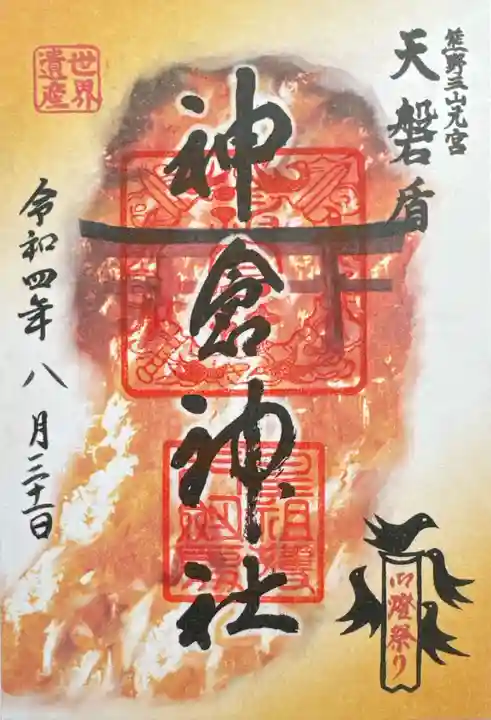 熊野三山元宮
天磐盾
神倉神社
令和四年八月三十一日
世界
遺産
御燈祭り